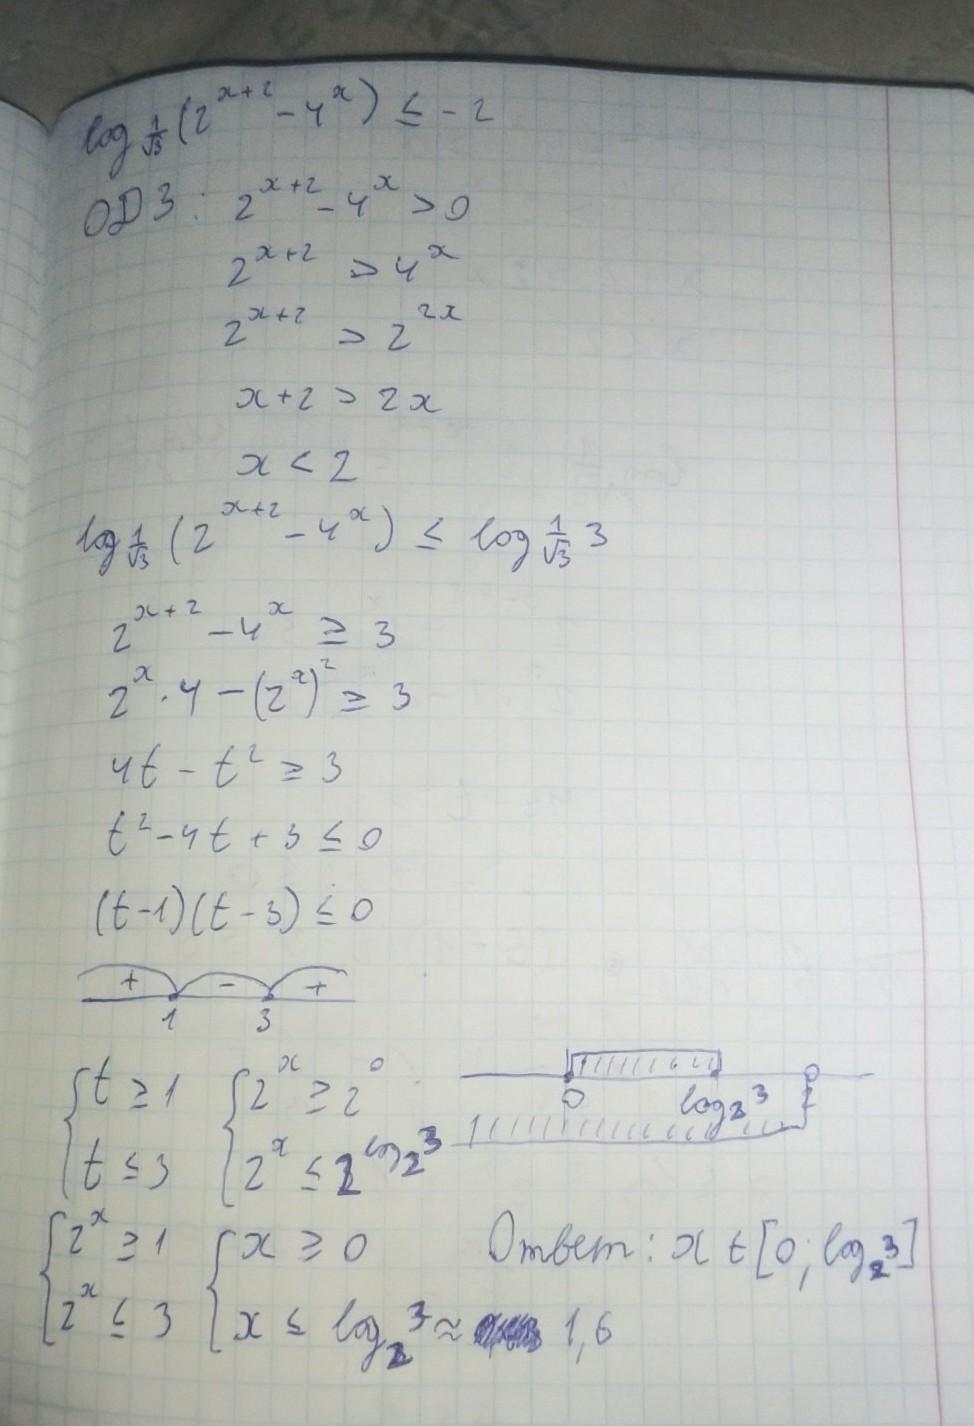 log 1/√3 (2^(x+2) - 4^x) ≤ -2
ОДЗ: 2^(x+2) - 4^x > 0
2^(x+2) > 4^x
2^(x+2) > 2^(2x)
x+2 > 2x
x < 2
log 1/√3 (2^(x+2) - 4^x) ≤ log 1/√3 3
2^(x+2) - 4^x ≥ 3
2^x · 4 - (2^x)^2 ≥ 3
4t - t^2 ≥ 3
t^2 - 4t + 3 ≤ 0
(t-1)(t-3) ≤ 0
+ - +
1 3
{ t ≥ 1
t ≤ 3
{ 2^x ≥ 2^0
2^x ≤ 2^(log₂3)
0 log₂3 2
{ 2^x ≥ 1
2^x ≤ 3
{ x ≥ 0
x ≤ log₂3 ≈ 1,6
Ответ: x ∈ [0; log₂3]